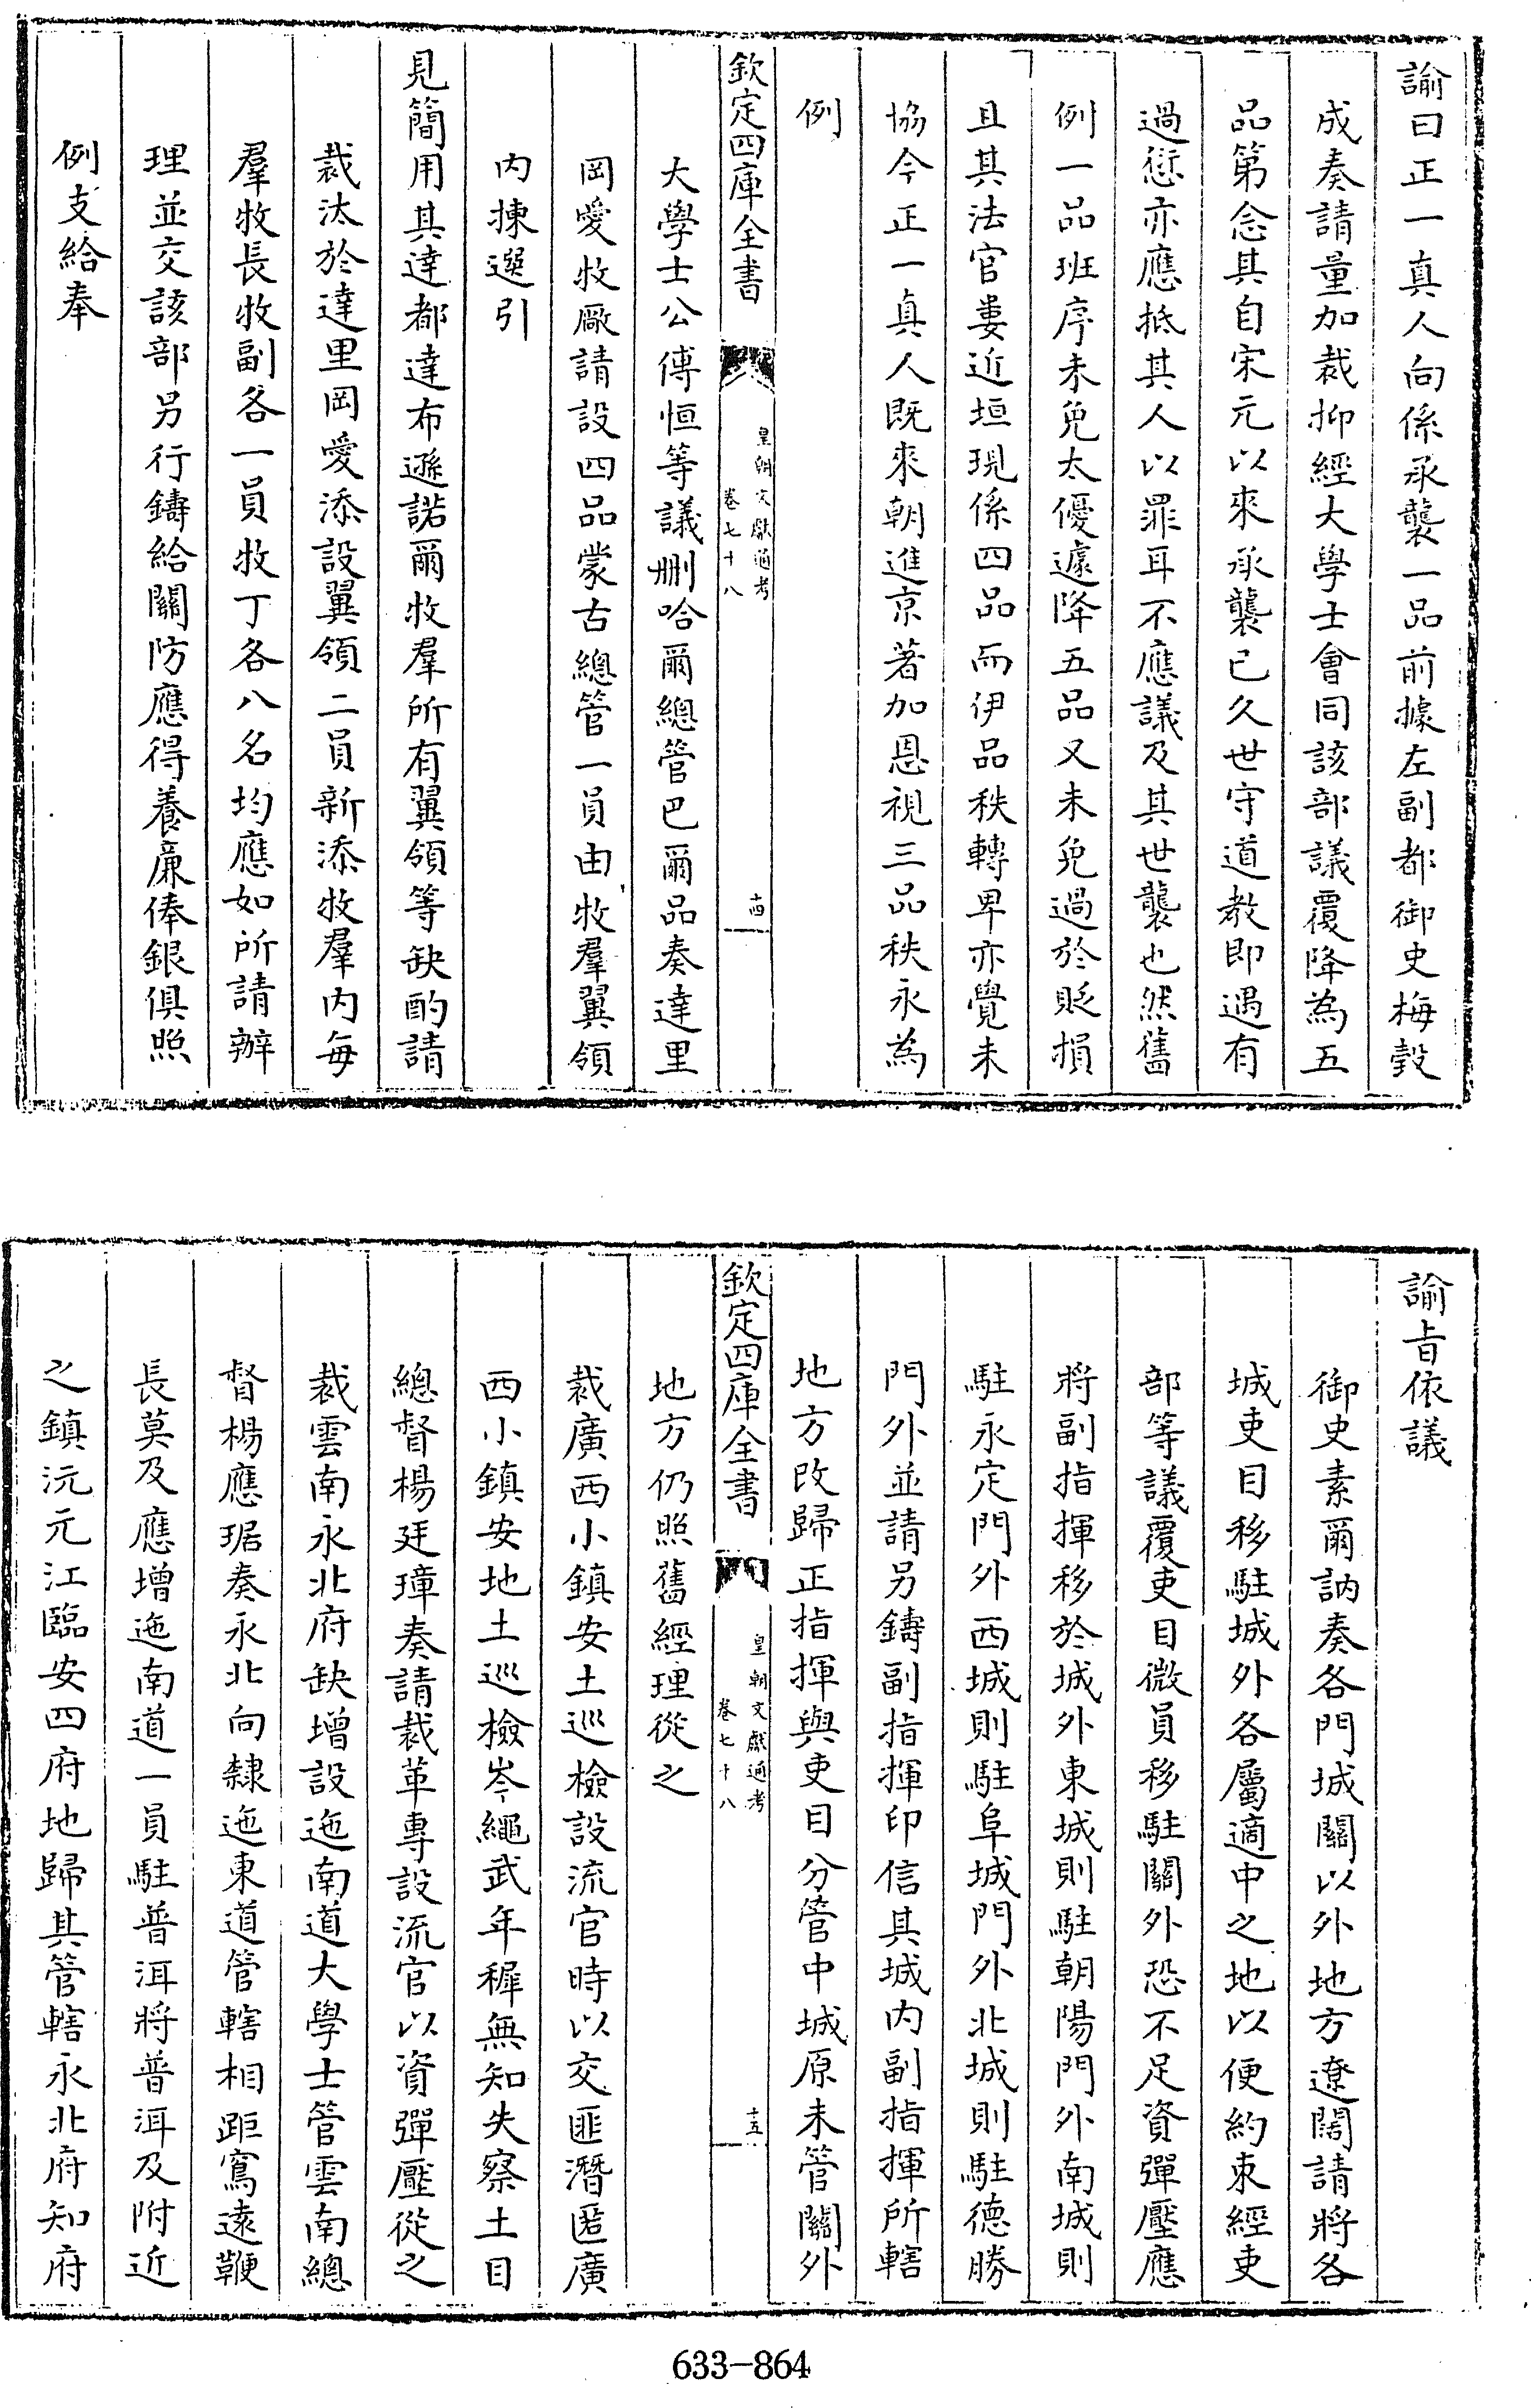 諭曰正一真人向係承襲一品前據左副都御史梅㲄
成奏請量加裁抑經大學士會同該部議覆降為五
品第念其自宋元以來承襲已久世守道教即遇有
過愆亦應抵其人以罪耳不應議及其世襲也然舊
例一品班序未免太優遽降五品又未免過於貶損
且其法官婁近垣現係四品而伊品秩轉卑亦覺未
協今正一真人既來朝進京著加恩視三品秩永為
例
欽定四庫全書
皇朝文獻通考
卷七十八
十四
大學士公傅恒等議刪哈爾總管巴爾品奏達里
岡愛牧厰請設四品蒙古總管一員由牧羣翼領
内揀選引
見簡用其達都達布遜諾爾牧羣所有翼領等缺酌請
裁汰於達里岡愛添設翼領二員新添牧羣内每
羣牧長牧副各一員牧丁各八名均應如所請辦
理並交該部另行鑄給關防應得養廉俸銀俱照
例支給奉
諭旨依議
御史素爾訥奏各門城關以外地方遼闊請將各
城吏目移駐城外各屬適中之地以便約束經吏
部等議覆吏目微員移駐關外恐不足資彈壓應
將副指揮移於城外東城則駐朝陽門外南城則
駐永定門外西城則駐阜城門外北城則駐德勝
門外並請另鑄副指揮印信其城内副指揮所轄
地方改歸正指揮與吏目分管中城原未管關外
欽定四庫全書
皇朝文獻通考
卷七十八
十五
地方仍照舊經理從之
裁廣西小鎮安土巡檢設流官時以交匪潛匿廣
西小鎮安地土巡檢岑繩武年穉無知失察土目
總督楊廷璋奏請裁革專設流官以資彈壓從之
裁雲南永北府缺增設迤南道大學士管雲南總
督楊應琚奏永北向隸迤東道管轄相距寫遠鞭
長莫及應增迤南道一員駐普洱將普洱及附近
之鎮沅元江臨安四府地歸其管轄永北府知府
633-864